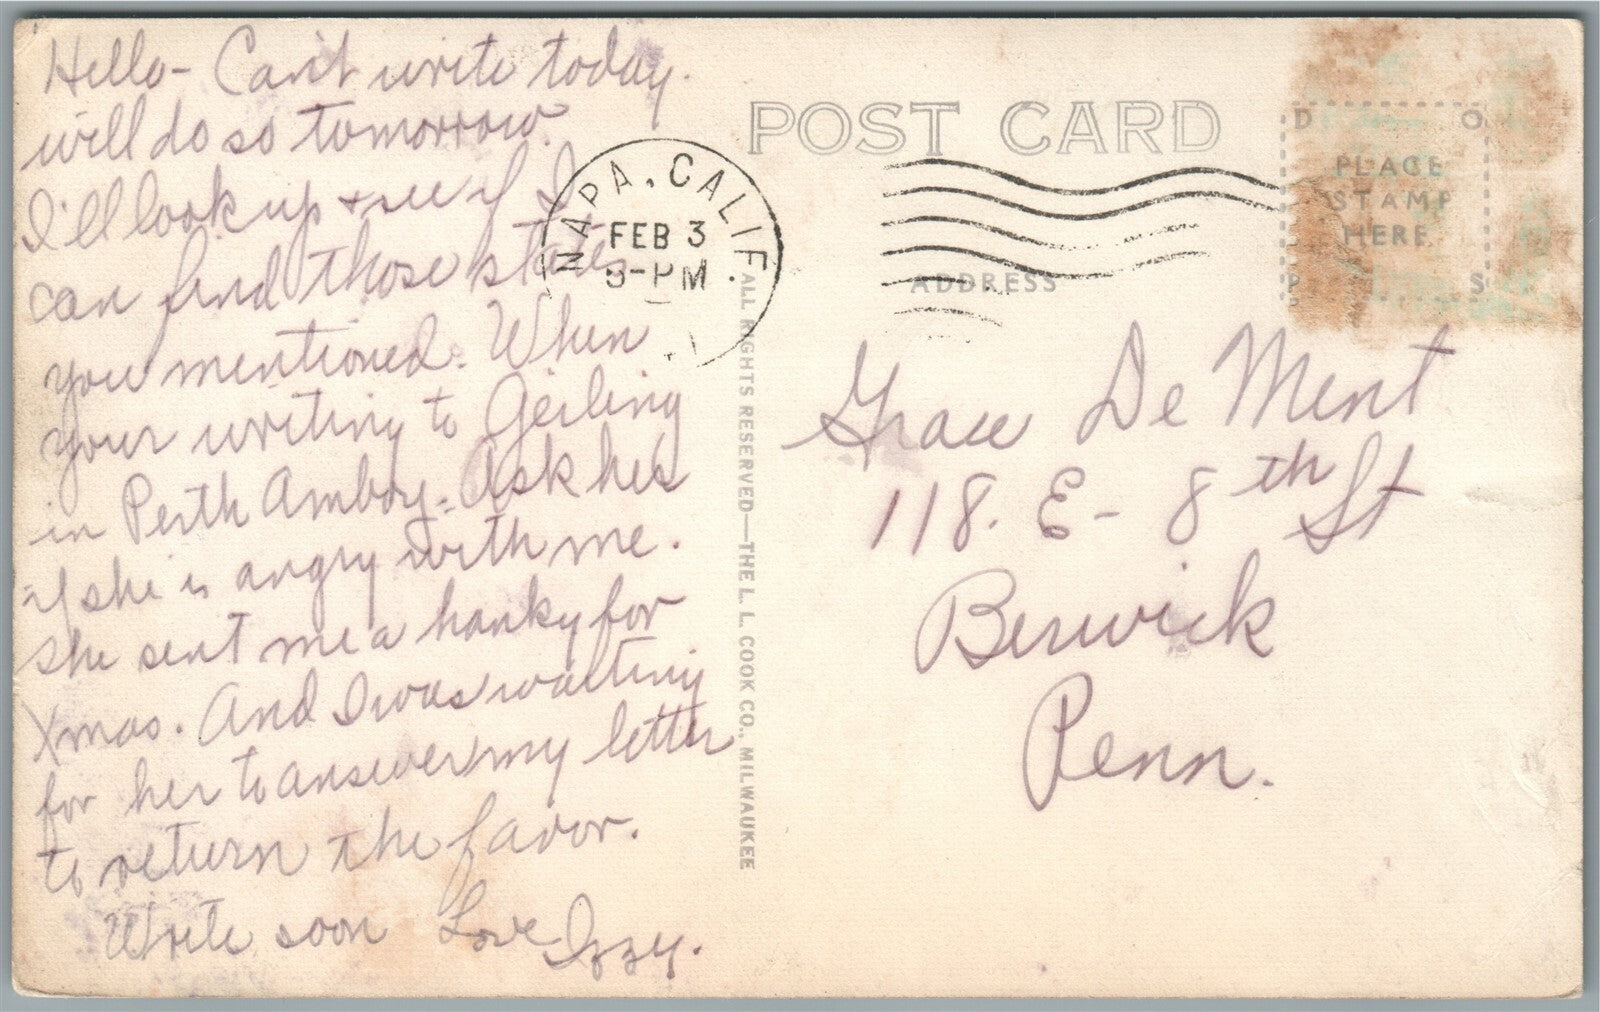 Hello- Can't write today.
will do so tomorrow.
I'll look up + see if I
can find those states
you mentioned. When
your writing to Geiling
in Perth Amboy. Ask her
if she is angry with me.
She sent me a hanky for
Xmas. And I was waiting
for her to answer my letter
to return the favor.
Write soon Love Izzy.
POST CARD
NAPA, CALIF.
FEB 3
PM
ADDRESS
D O
PLACE
STAMP
HERE
P S
ALL RIGHTS RESERVED—THE L. L. COOK CO., MILWAUKEE
Grace De Ment
118. E- 8th St
Berwick
Penn.